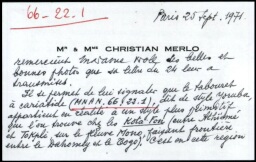 66-22.1
Paris 25 Sept. 1971.
Mr & Mme CHRISTIAN MERLO
remercient Madame Holl des belles et
bonnes photos que sa lettre du 24 leur a
transmises.
Il se permet de lui signaler que le tabouret
à cariatide (MNAN. 66-22-1), dit de style Yoruba,
appartient en réalité à un style plus
que l'on trouve chez les Kota Fon (entre Athiémé
et Topklé sur le fleuve Mono, faisant frontière
entre le Dahomey et le Togo). C'est en cette région